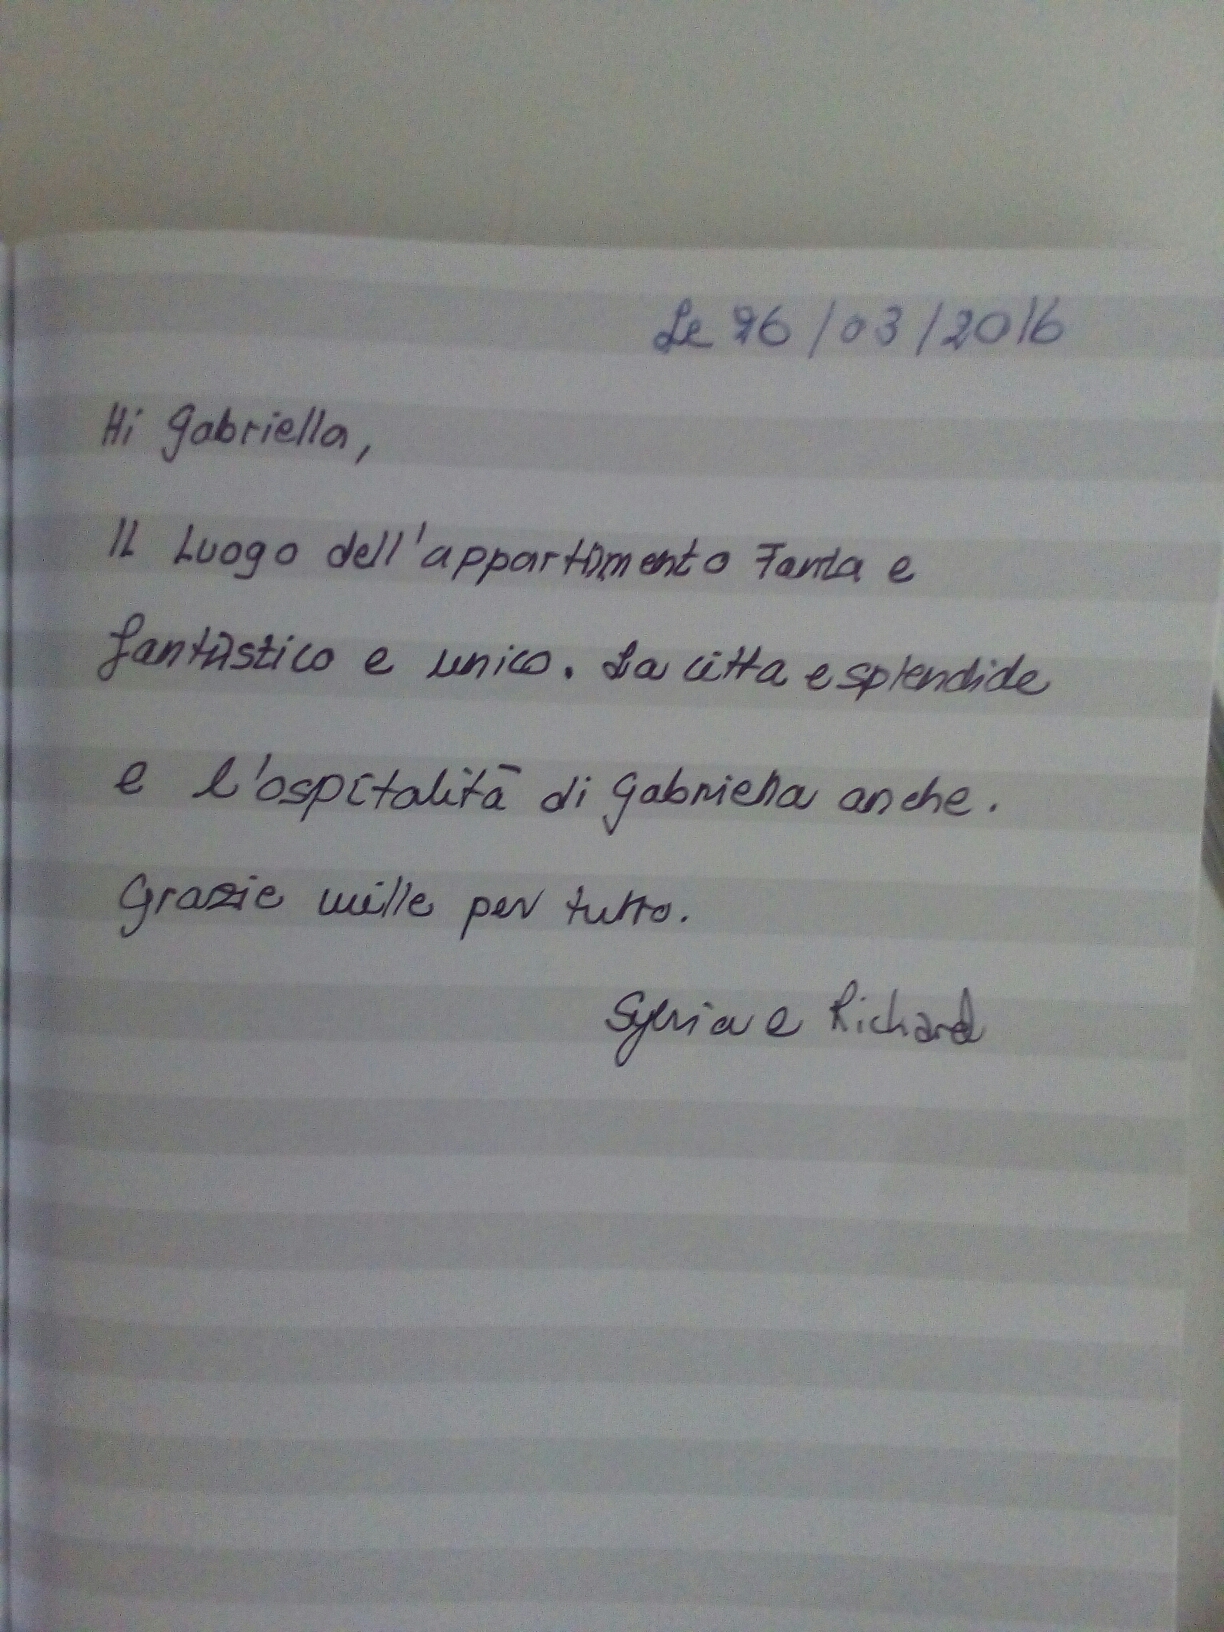 Le 26/03/2016
Hi Gabriella,
IL Luogo dell'appartimento Tanta e
fantastico e unico. La citta e splendide
e l'ospitalità di Gabriella anche.
Grazie mille per tutto.
Sylvia e Richard